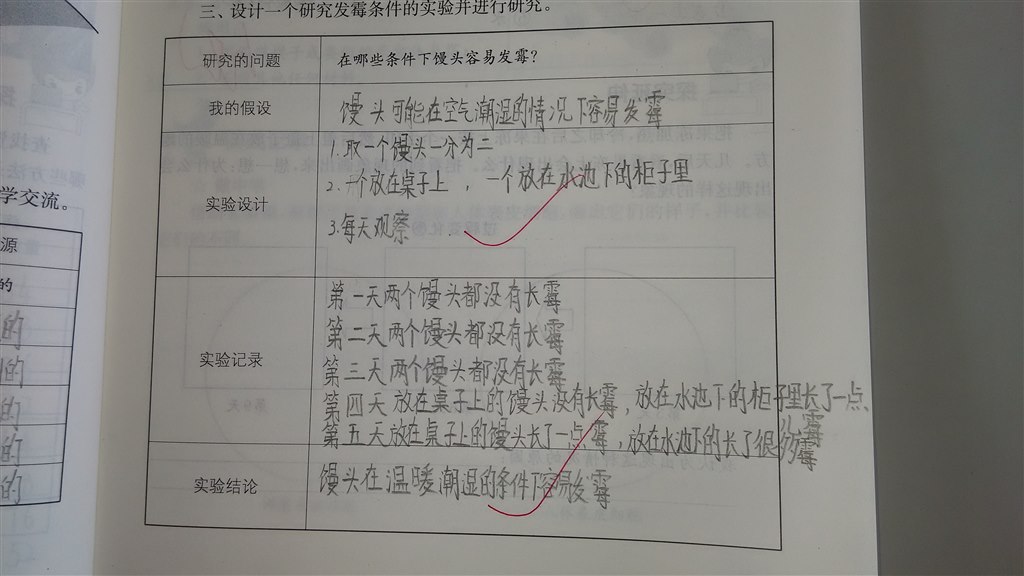 三、设计一个研究发霉条件的实验并进行研究。
研究的问题
在哪些条件下馒头容易发霉?
我的假设
馒头可能在空气潮湿的情况下容易发霉
实验设计
1.取一个馒头一分为二
2.一个放在桌子上,一个放在水池下的柜子里
3.每天观察
实验记录
第一天两个馒头都没有长霉
第二天两个馒头都没有长霉
第三天两个馒头都没有长霉
第四天放在桌子上的馒头没有长霉,放在水池下的柜子里长了一点儿霉
第五天放在桌子上的馒头长了一点霉,放在水池下的长了很多霉
实验结论
馒头在温暖潮湿的条件下容易发霉
学交流。
源
的
的
的
的
的
的